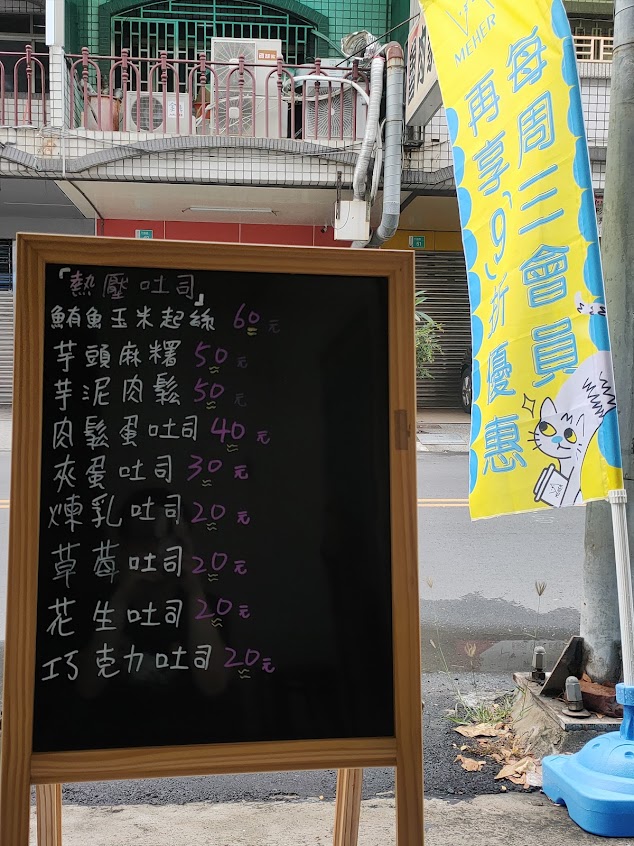 「熱壓吐司」
鮪魚玉米起絲 60元
芋頭麻糬 50元
芋泥肉鬆 50元
肉鬆蛋吐司 40元
夾蛋吐司 30元
煉乳吐司 20元
草莓吐司 20元
花生吐司 20元
巧克力吐司 20元
MEHER
每周三會員
再享,9,折優惠